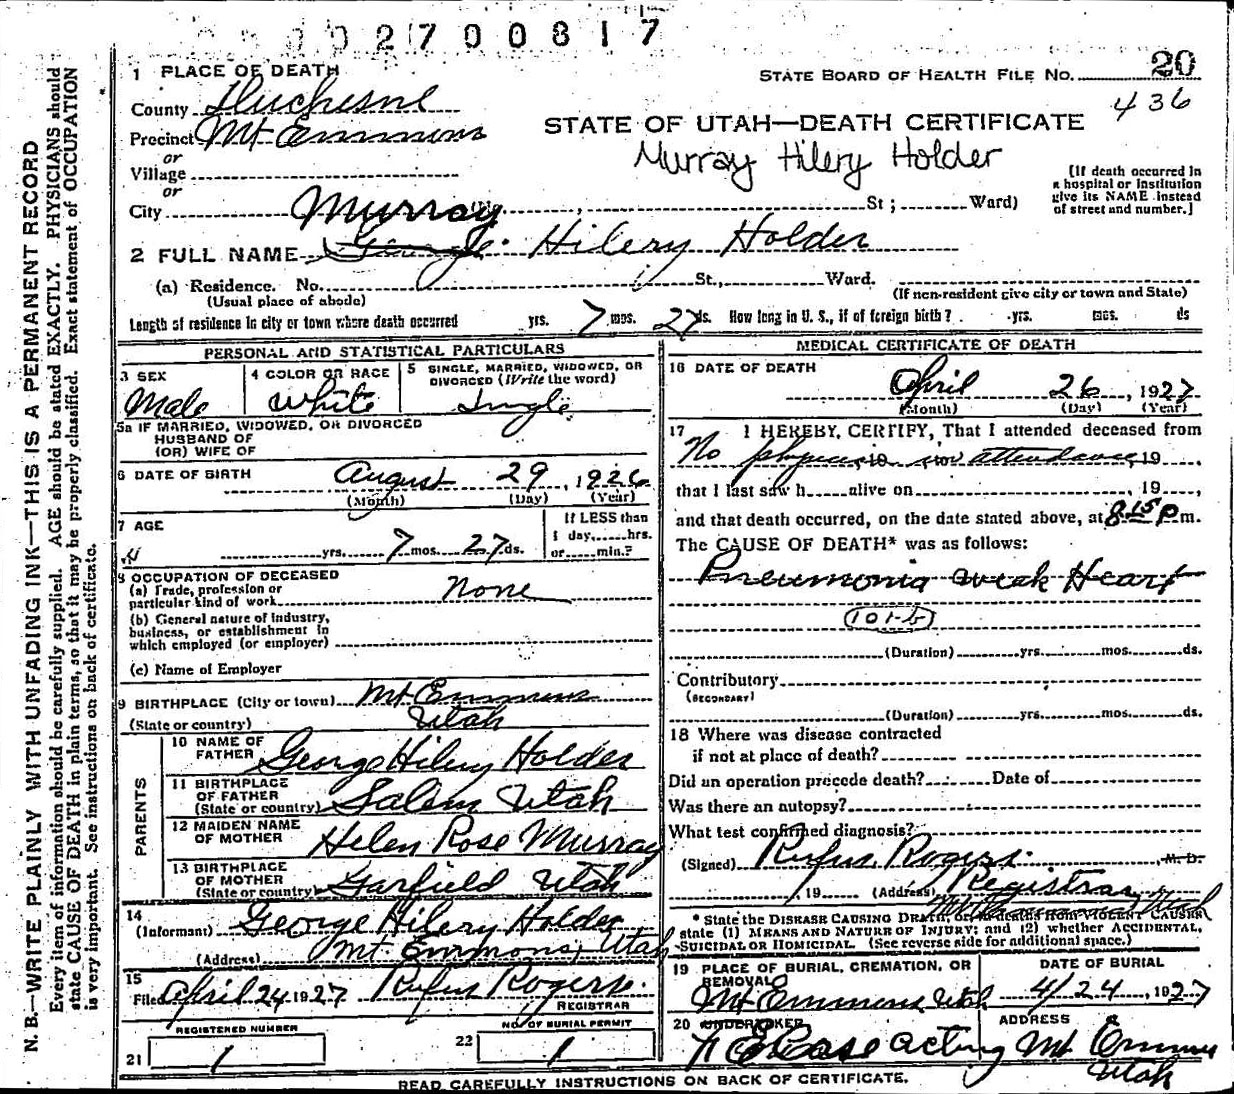 2700817
1 PLACE OF DEATH
STATE BOARD OF HEALTH FILE NO. 20
436
County Duchesne
Precinct Mt Emmons
STATE OF UTAH—DEATH CERTIFICATE
Murray Hilery Holder
or
Village
or
City St; Ward)
[If death occurred in
a hospital or institution
give its NAME instead
of street and number.]
Murray
2 FULL NAME George Hilery Holder
(a) Residence. No. St., Ward.
(Usual place of abode) (If non-resident give city or town and State)
Length of residence in city or town where death occurred yrs. 7 mos. 27 ds. How long in U. S., if of foreign birth? yrs. mos. ds
PERSONAL AND STATISTICAL PARTICULARS
3 SEX 4 COLOR OR RACE 5 SINGLE, MARRIED, WIDOWED, OR
DIVORCED (Write the word)
Male White Single
5a IF MARRIED, WIDOWED, OR DIVORCED
HUSBAND OF
(OR) WIFE OF
6 DATE OF BIRTH August 29, 1926
(Month) (Day) (Year)
7 AGE If LESS than
1 day, hrs.
yrs. 7 mos. 27 ds. or min.?
8 OCCUPATION OF DECEASED
(a) Trade, profession or
particular kind of work None
(b) General nature of industry,
business, or establishment in
which employed (or employer)
(c) Name of Employer
9 BIRTHPLACE (City or town) Mt Emmons
(State or country) Utah
PARENTS
10 NAME OF
FATHER George Hilery Holder
11 BIRTHPLACE
OF FATHER
(State or country) Salem Utah
12 MAIDEN NAME
OF MOTHER Helen Rose Murray
13 BIRTHPLACE
OF MOTHER
(State or country) Garfield Utah
14
(Informant) George Hilery Holder
(Address) Mt. Emmons, Utah
15
Filed April 24 1927 Rufus Rogers
REGISTRAR
REGISTERED NUMBER NO. OF BURIAL PERMIT
21 1 22 1
MEDICAL CERTIFICATE OF DEATH
16 DATE OF DEATH
April 26, 1927
(Month) (Day) (Year)
17 I HEREBY, CERTIFY, That I attended deceased from
No physician in attendance, 19
that I last saw h alive on , 19 ,
and that death occurred, on the date stated above, at 8.15 P m.
The CAUSE OF DEATH* was as follows:
Pneumonia weak Heart
101-b
(Duration) yrs. mos. ds.
Contributory
(SECONDARY)
(Duration) yrs. mos. ds.
18 Where was disease contracted
if not at place of death?
Did an operation precede death? Date of
Was there an autopsy?
What test confirmed diagnosis?
(Signed) Rufus Rogers. M. D.
, 19 (Address) Registrar
Mt Emmons Utah
* State the DISEASE CAUSING DEATH, or, in deaths from VIOLENT CAUSES
state (1) MEANS AND NATURE OF INJURY; and (2) whether ACCIDENTAL,
SUICIDAL OR HOMICIDAL. (See reverse side for additional space.)
19 PLACE OF BURIAL, CREMATION, OR
REMOVAL DATE OF BURIAL
Mt Emmons Utah 4/24, 1927
20 UNDERTAKER ADDRESS
Case acting Mt Emmons
Utah
READ CAREFULLY INSTRUCTIONS ON BACK OF CERTIFICATE.
N. B.—WRITE PLAINLY WITH UNFADING INK—THIS IS A PERMANENT RECORD
Every item of information should be carefully supplied. AGE should be stated EXACTLY. PHYSICIANS should
state CAUSE OF DEATH in plain terms, so that it may be properly classified. Exact statement of OCCUPATION
is very important. See instructions on back of certificate.